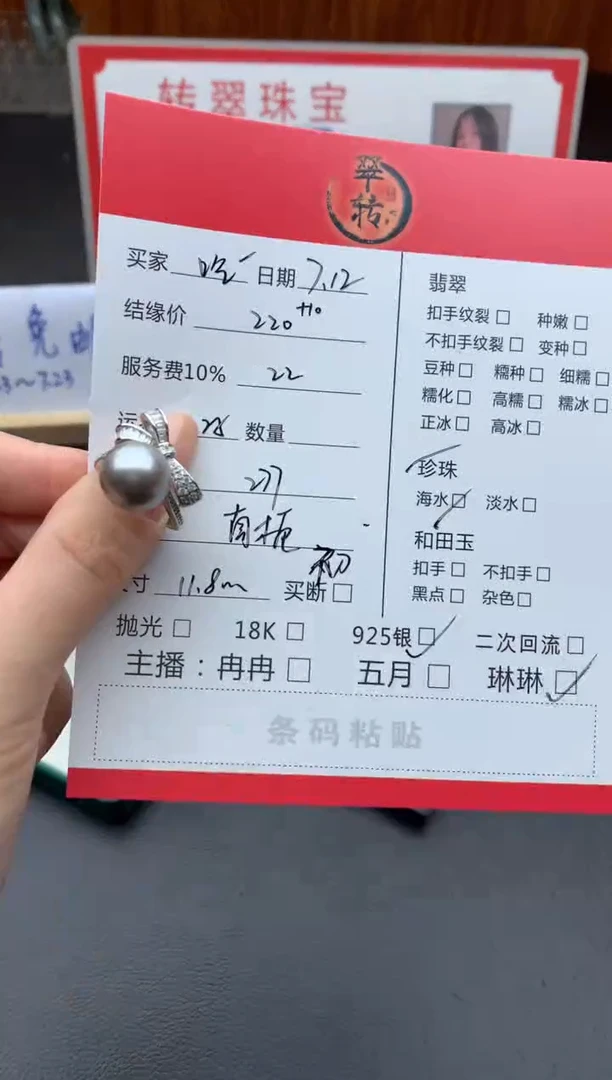 转翠珠宝
翠
转
买家 日期 7.12
结缘价 220 +10
服务费10% 22
运 28 数量
277
寸 11.8m 买断□
翡翠
扣手纹裂□ 种嫩□
不扣手纹裂□ 变种□
豆种□ 糯种□ 细糯□
糯化□ 高糯□ 糯冰□
正冰□ 高冰□
珍珠
海水☑ 淡水□
和田玉
扣手□ 不扣手□
黑点□ 杂色□
抛光□ 18K□ 925银☑ 二次回流□
主播：冉冉□ 五月□ 琳琳☑
条码粘贴
免邮
~7.23